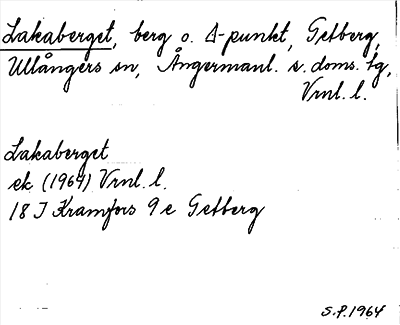 Lakaberget, berg o. Δ-punkt, Getberg,
Ullångers sn, Ångermanl. s. doms. tg,
Vrnl. l.
Lakaberget
ek (1964) Vrnl. l.
18 J Kramfors 9 e Getberg
S.P. 1964